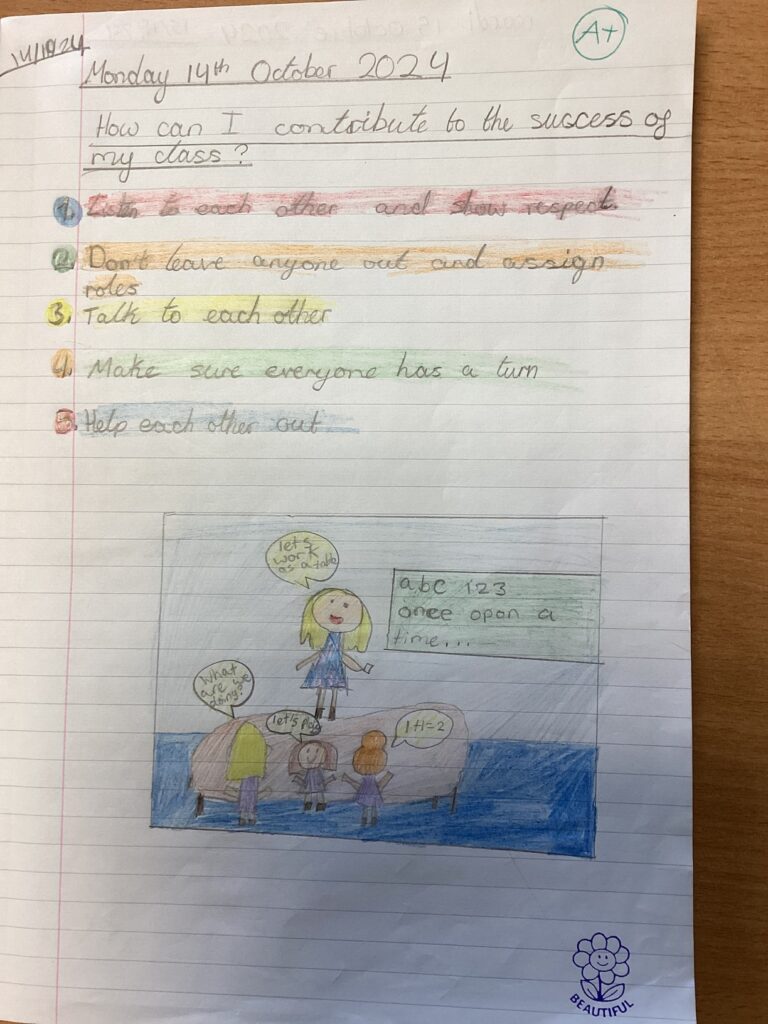 A+
14/10/24
Monday 14th October 2024
How can I contribute to the success of
my class?
1. Listen to each other and show respect.
2. Don't leave anyone out and assign
roles
3. Talk to each other
4. Make sure everyone has a turn
5. Help each other out
let's
work
as a table
abc 123
once opon a
time...
What
are we
doing?
let's play
1+1=2
BEAUTIFUL